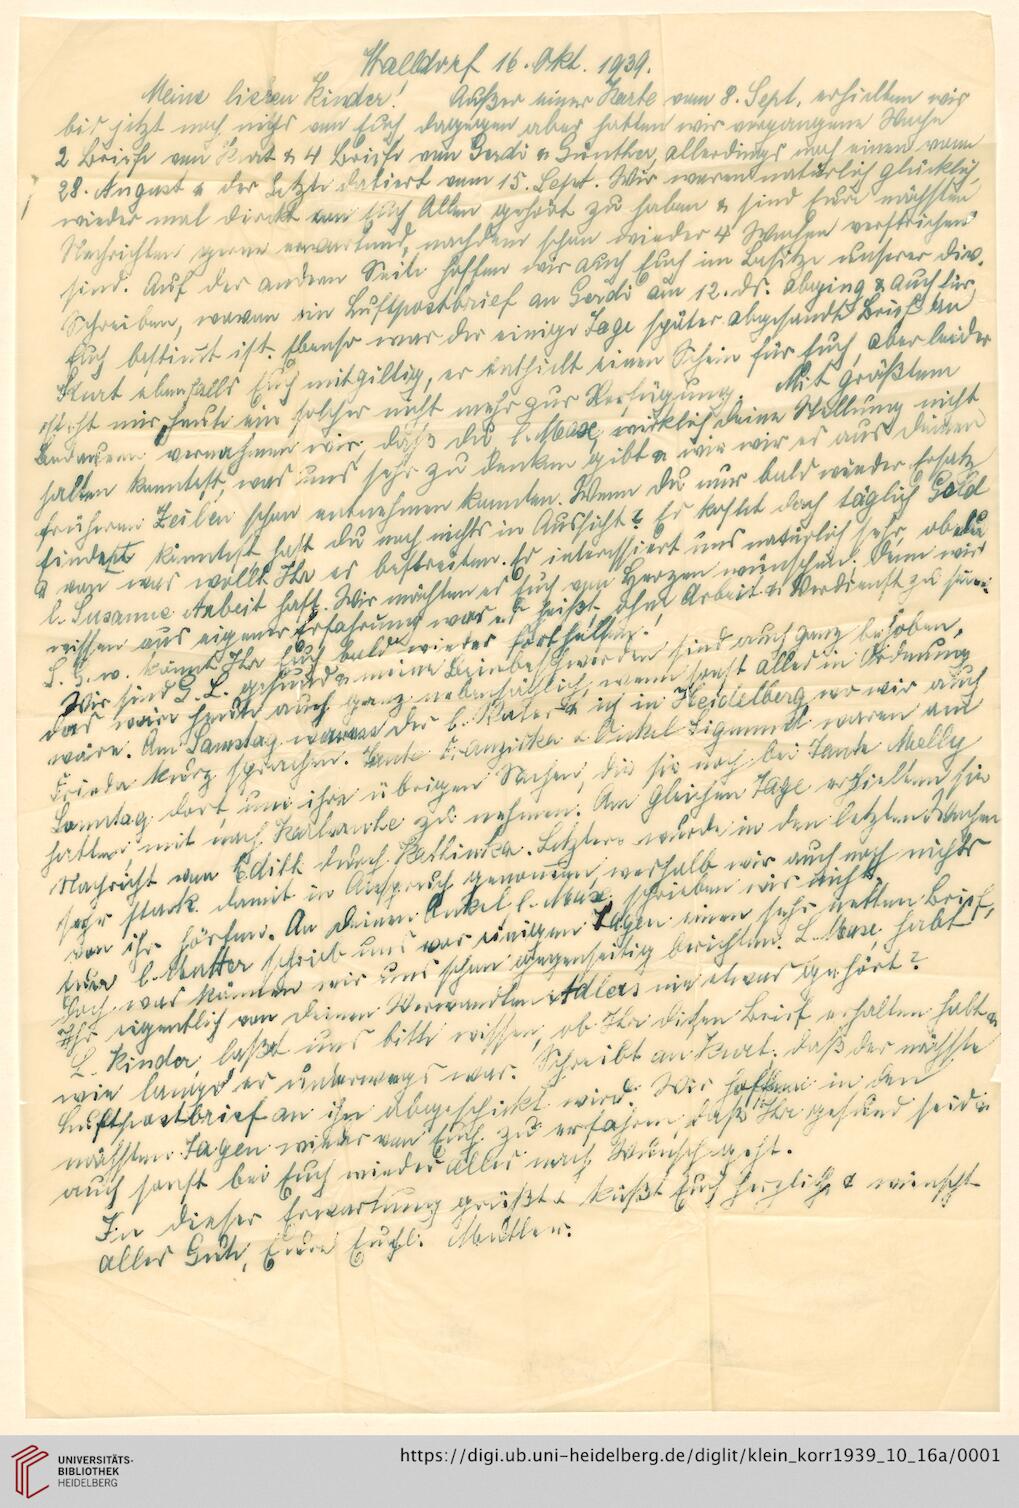 Walldorf 16. Okt. 1939.
Meine lieben Kinder! Außer einer Karte vom 8. Sept. erhielten wir
bis jetzt noch nichts von Euch, dagegen aber hatten wir vergangene Woche
2 Briefe von Kurt & 4 Briefe von Gerdi & Günther, allerdings noch einen vom
28. August & der Letzte datiert vom 15. Sept. Wir waren natürlich glücklich,
wieder mal direkt von Euch Allen gehört zu haben & sind Eure nächsten
Nachrichten gerne erwartend, nachdem schon wieder 4 Wochen verstrichen
sind. Auf der andern Seite hoffen wir auch Euch im Besitze unserer div.
Schreiben, wovon ein Luftpostbrief an Gerdi am 12. ds. abging & auch für
Euch bestimmt ist. Ebenso war der einige Tage später abgesandte Brief an
Kurt ebenfalls Euch mitgiltig, er enthielt einen Schein für Euch, aber leider
steht mir heute ein solcher nicht mehr zur Verfügung. Mit größtem
Bedauern vernahmen wir, daß du l. Max, wirklich deine Stellung nicht
halten konntest, was uns sehr zu denken gibt & wie wir es aus deinen
früheren Zeilen schon entnehmen konnten. Wenn du nur bald wieder Ersatz
findest könntest, hast du noch nichts in Aussicht? Es kostet doch täglich Geld
& von was wollt Ihr es bestreiten. Es interessiert uns natürlich sehr, ob du
l. Susanne Arbeit hast. Wir möchten es Euch von Herzen wünschen. Denn wir
wissen aus eigener Erfahrung was es heißt, ohne Arbeit & Verdienst zu sein.
S. G. w. könnt Ihr Euch bald wieder forthelfen!
Wir sind G. L. gesund & meine Beinbeschwerden sind auch ganz behoben,
das wäre heute auch ganz nebensächlich, wenn sonst alles in Ordnung
wäre. Am Samstag waren der l. Vater & ich in Heidelberg, wo wir auch
Frieda kurz sprachen. Tante Franziska & Onkel Sigmund waren am
Sonntag dort, um ihre übrigen Sachen, die sie noch bei Tante Melly
hatten, mit nach Karlsruhe zu nehmen. Am gleichen Tage erhielten sie
Nachricht von Edith durch Kathinka. Letztere wurde in den letzten Wochen
sehr stark damit in Anspruch genommen, weshalb wir auch noch nichts
von ihr hörten. An deinen Onkel l. Max, schrieben wir nicht,
Eure l. Mutter schrieb uns vor einigen Tagen einen sehr netten Brief,
doch was können wir uns schon gegenseitig berichten. L. Max, habt
Ihr eigentlich von deinen Verwandten Adlers nie etwas gehört?
L. Kinder, laßt uns bitte wissen, ob Ihr diesen Brief erhalten habt &
wie lange er unterwegs war. Schreibt an Kurt, daß der nächste
Luftpostbrief an ihn abgeschickt wird. Wir hoffen in den
nächsten Tagen wieder von Euch zu erfahren, daß Ihr gesund seid &
auch sonst bei Euch wieder alles nach Wunsch geht.
In dieser Erwartung grüßt & küßt Euch herzlich & wünscht
alles Gute, Eure Euchl. Mutter.
UNIVERSITÄTS-
BIBLIOTHEK
HEIDELBERG
https://digi.ub.uni-heidelberg.de/diglit/klein_korr1939_10_16a/0001